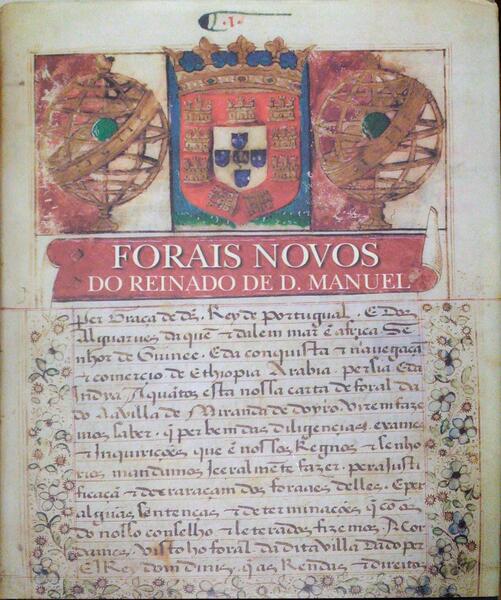 ·I·
FORAIS NOVOS
DO REINADO DE D. MANUEL
per Graça de ds̃. Rey de portugual. E Dos
Alguarues daquẽ ⁊ dalem mar ẽ africa Se
nhor de Guinee. E da conquista ⁊ nauegaçã
⁊ comercio de Ethiopia Arabia. persia E da
India A quãtos esta nossa carta de foral da
do aa Villa de Miranda de doyro virem faze
mos saber. q̃ per bem das diligencias, exames
⁊ Inquirições que ẽ nossos Regnos ⁊ senho
rios mandamos geeralmẽte fazer. pera Justi
ficaçã ⁊ decraraçam dos foraaes delles. E per
alguũas sentenças ⁊ determinações q̃ cõ os
do nosso conselho ⁊ leterados fizemos. Acor
damos. visto ho foral da dita villa Dado per
El Rey dom dinis. q̃ as Rendas ⁊ direitos